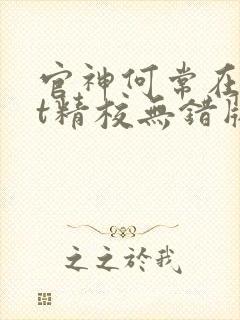 官神何常在
t精校無錯版
之之於我